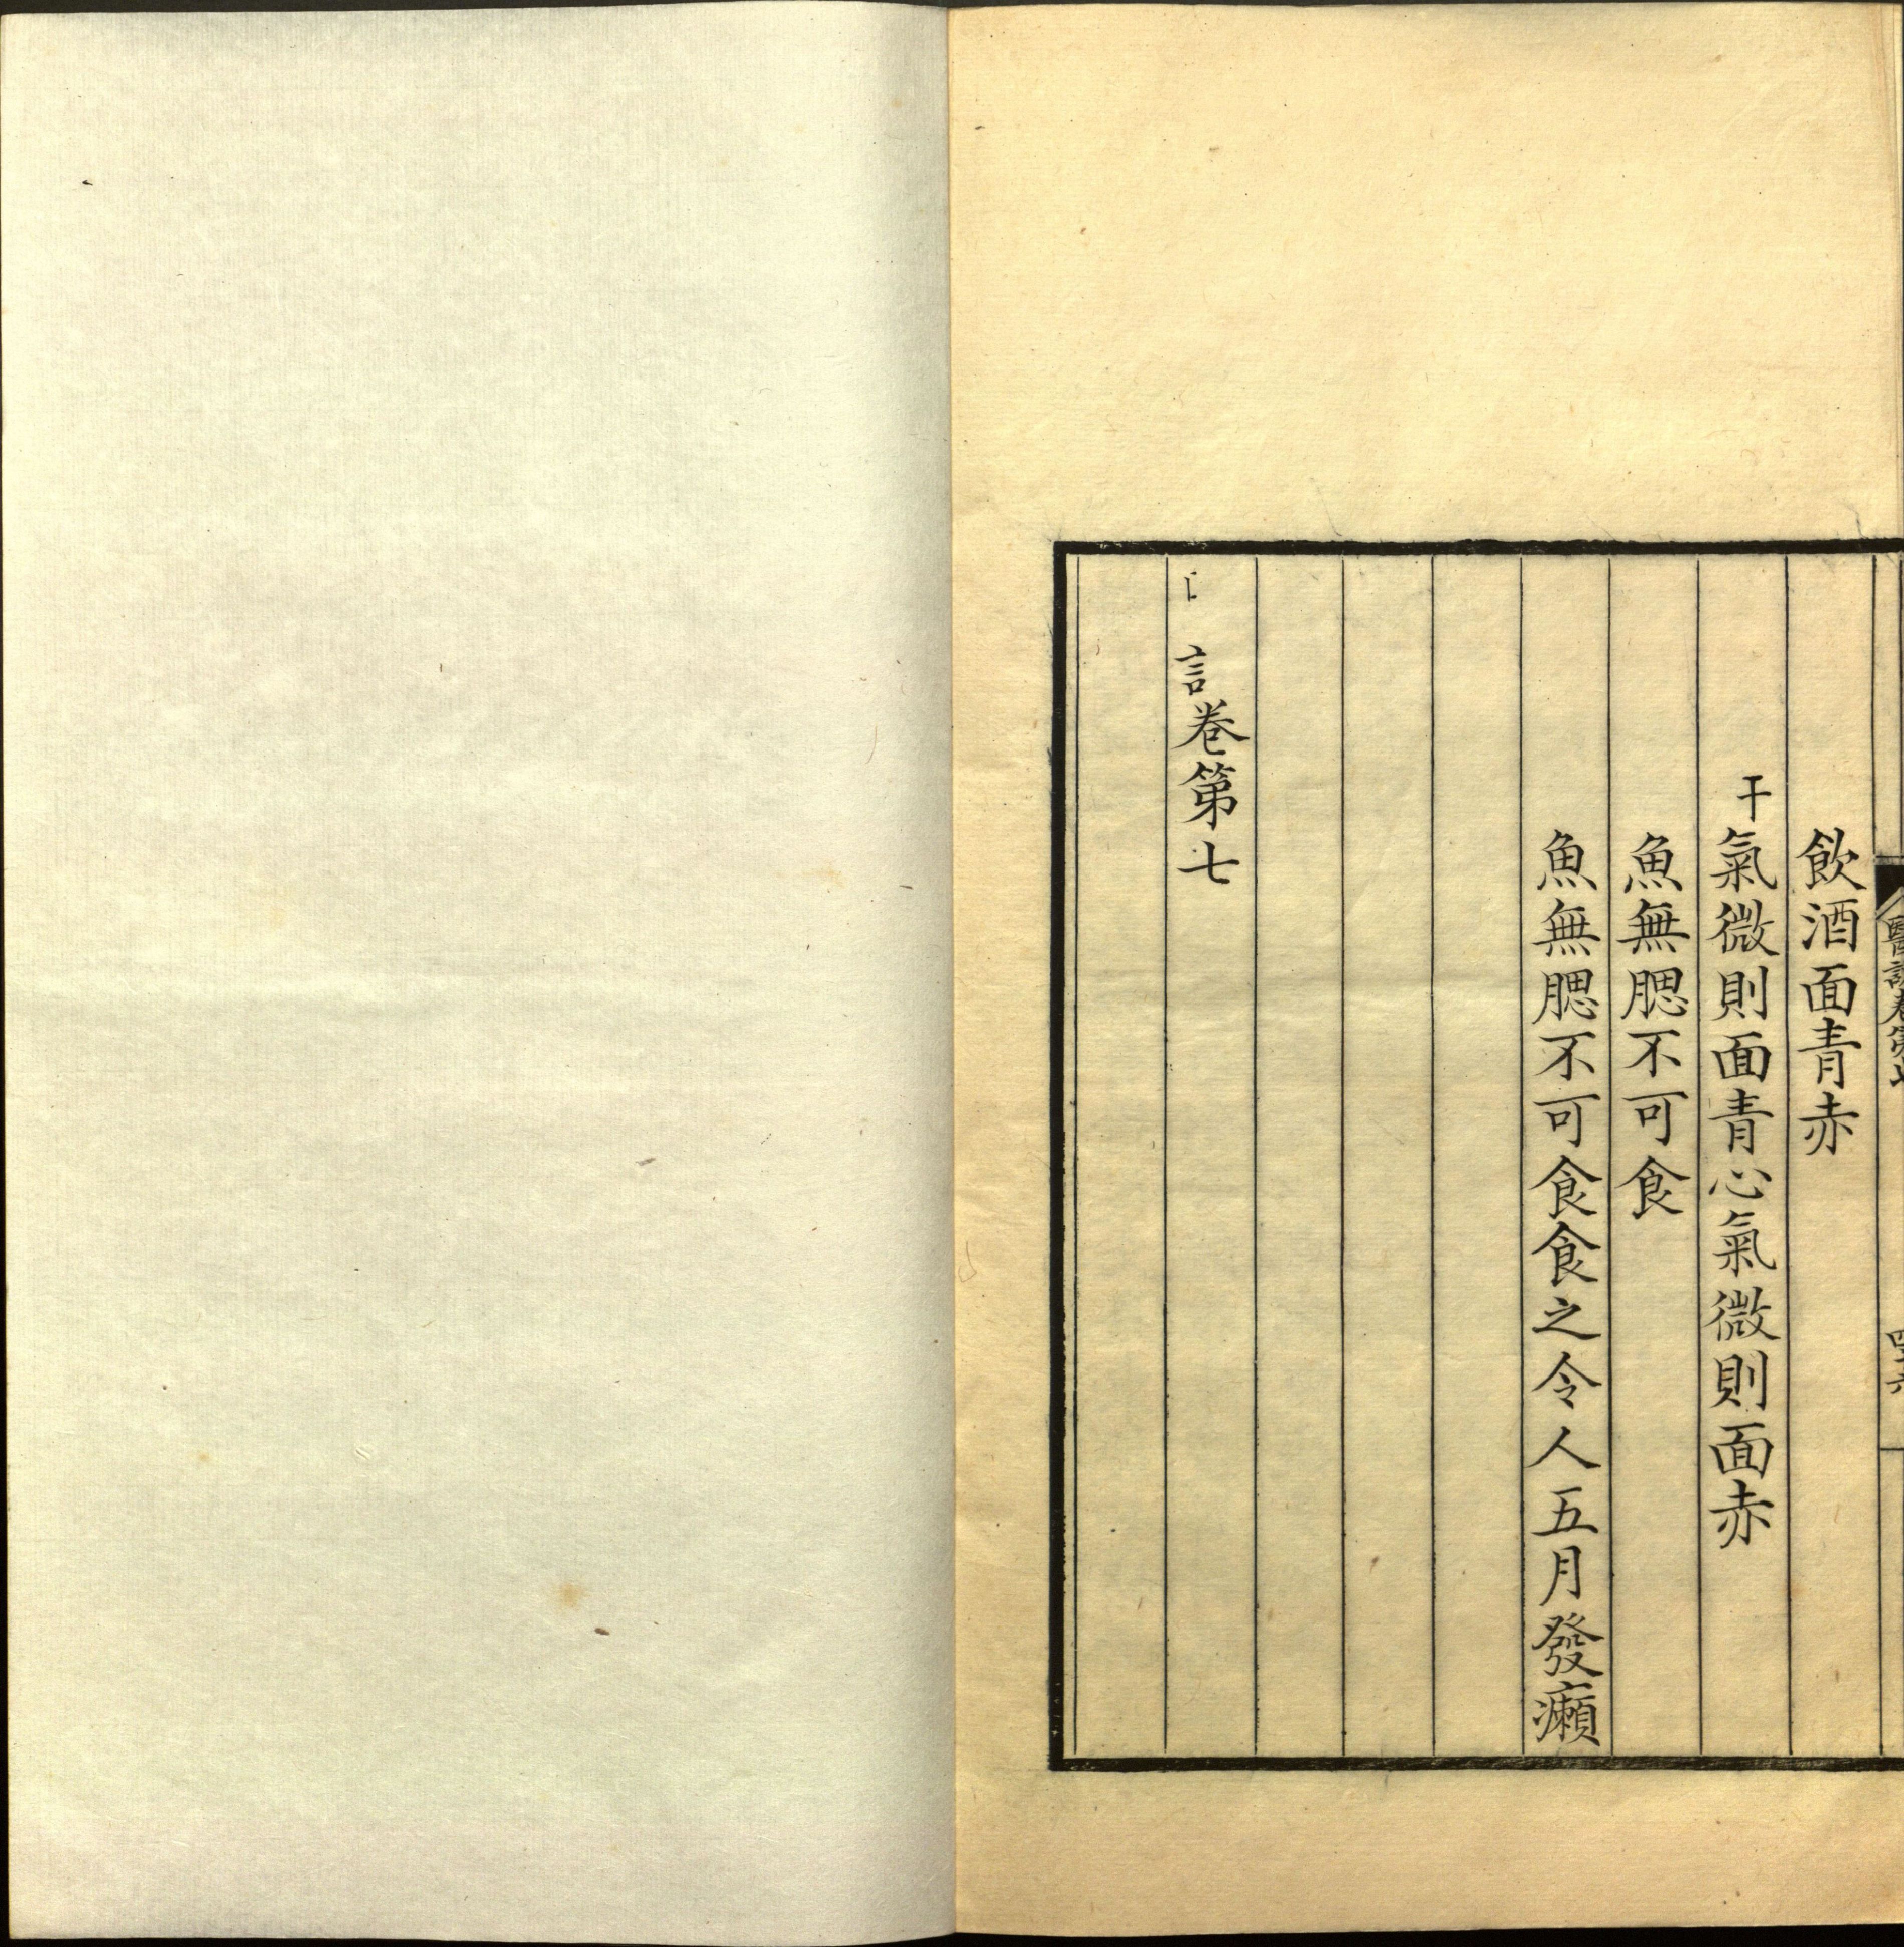 飲酒面青赤
干氣微則面青心氣微則面赤
魚無腮不可食
魚無腮不可食食之令人五月發癩
言卷第七